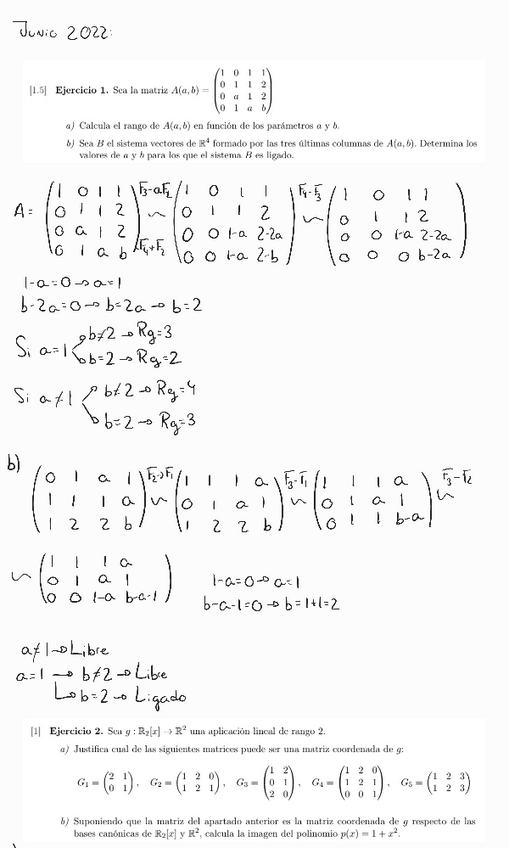 JUNIO 2022:
[1.5] Ejercicio 1. Sea la matriz A(a, b) = (1 0 1 1
0 1 1 2
0 a 1 2
0 1 a b)
a) Calcula el rango de A(a, b) en función de los parámetros a y b.
b) Sea B el sistema vectores de ℝ⁴ formado por las tres últimas columnas de A(a, b). Determina los
valores de a y b para los que el sistema B es ligado.
A = (1 0 1 1 F₃-aF₂ (1 0 1 1 F₄-F₃ (1 0 1 1
0 1 1 2 ~ 0 1 1 2 ~ 0 1 1 2
0 a 1 2 0 0 1-a 2-2a 0 0 1-a 2-2a
0 1 a b) F₄+F₂ 0 0 1-a 2-b) 0 0 0 b-2a)
1-a=0 → a=1
b-2a=0 → b=2a → b=2
Si a=1 b≠2 → Rg=3
b=2 → Rg=2
Si a≠1 b≠2 → Rg=4
b=2 → Rg=3
b) (0 1 a 1 F₂→F₁ (1 1 1 a F₃-F₁ (1 1 1 a F₃-F₂
1 1 1 a ~ 0 1 a 1 ~ 0 1 a 1 ~
1 2 2 b) 1 2 2 b) 0 1 1 b-a)
~ (1 1 1 a
0 1 a 1
0 0 1-a b-a-1)
1-a=0 → a=1
b-a-1=0 → b=1+1=2
a≠1 → Libre
a=1 → b≠2 → Libre
↳ b=2 → Ligado
[1] Ejercicio 2. Sea g : ℝ₂[x] → ℝ² una aplicación lineal de rango 2.
a) Justifica cual de las siguientes matrices puede ser una matriz coordenada de g:
G₁ = (2 1
0 1), G₂ = (1 2 0
1 2 1), G₃ = (1 2
0 1
2 0), G₄ = (1 2 0
1 2 1
0 0 1), G₅ = (1 2 3
1 2 3)
b) Suponiendo que la matriz del apartado anterior es la matriz coordenada de g respecto de las
bases canónicas de ℝ₂[x] y ℝ², calcula la imagen del polinomio p(x) = 1 + x².